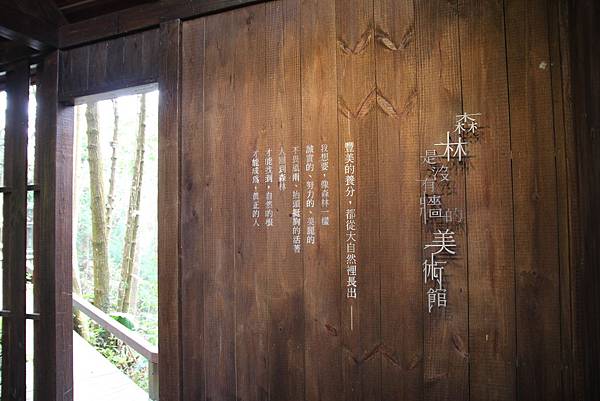 森林
是沒有牆的
美術館
——豐美的養分，都從大自然裡長出——
我想要，像森林一樣
誠實的、努力的、美麗的
不畏風雨、抬頭挺胸的活著
人回到森林
才能找到，自然的根
才能成為，真正的人